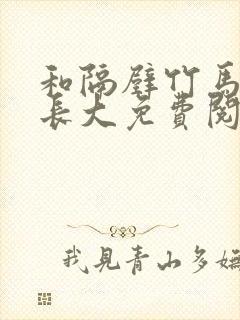 和隔壁竹马
长大免费阅
我见青山多妩